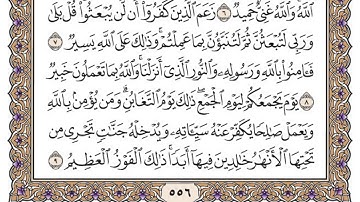 ٱللَّهُ وَٱللَّهُ غَنِىٌّ حَمِيدٌ ٦ زَعَمَ ٱلَّذِينَ كَفَرُوٓا۟ أَن لَّن يُبْعَثُوا۟ قُلْ بَلَىٰ
وَرَبِّى لَتُبْعَثُنَّ ثُمَّ لَتُنَبَّؤُنَّ بِمَا عَمِلْتُمْ وَذَٰلِكَ عَلَى ٱللَّهِ يَسِيرٌ ٧
فَـَٔامِنُوا۟ بِٱللَّهِ وَرَسُولِهِۦ وَٱلنُّورِ ٱلَّذِىٓ أَنزَلْنَا وَٱللَّهُ بِمَا تَعْمَلُونَ خَبِيرٌ
٨ يَوْمَ يَجْمَعُكُمْ لِيَوْمِ ٱلْجَمْعِ ذَٰلِكَ يَوْمُ ٱلتَّغَابُنِ وَمَن يُؤْمِنۢ بِٱللَّهِ
وَيَعْمَلْ صَٰلِحًا يُكَفِّرْ عَنْهُ سَيِّـَٔاتِهِۦ وَيُدْخِلْهُ جَنَّٰتٍ تَجْرِى مِن
تَحْتِهَا ٱلْأَنْهَٰرُ خَٰلِدِينَ فِيهَآ أَبَدًا ذَٰلِكَ ٱلْفَوْزُ ٱلْعَظِيمُ ٩
٥٥٦